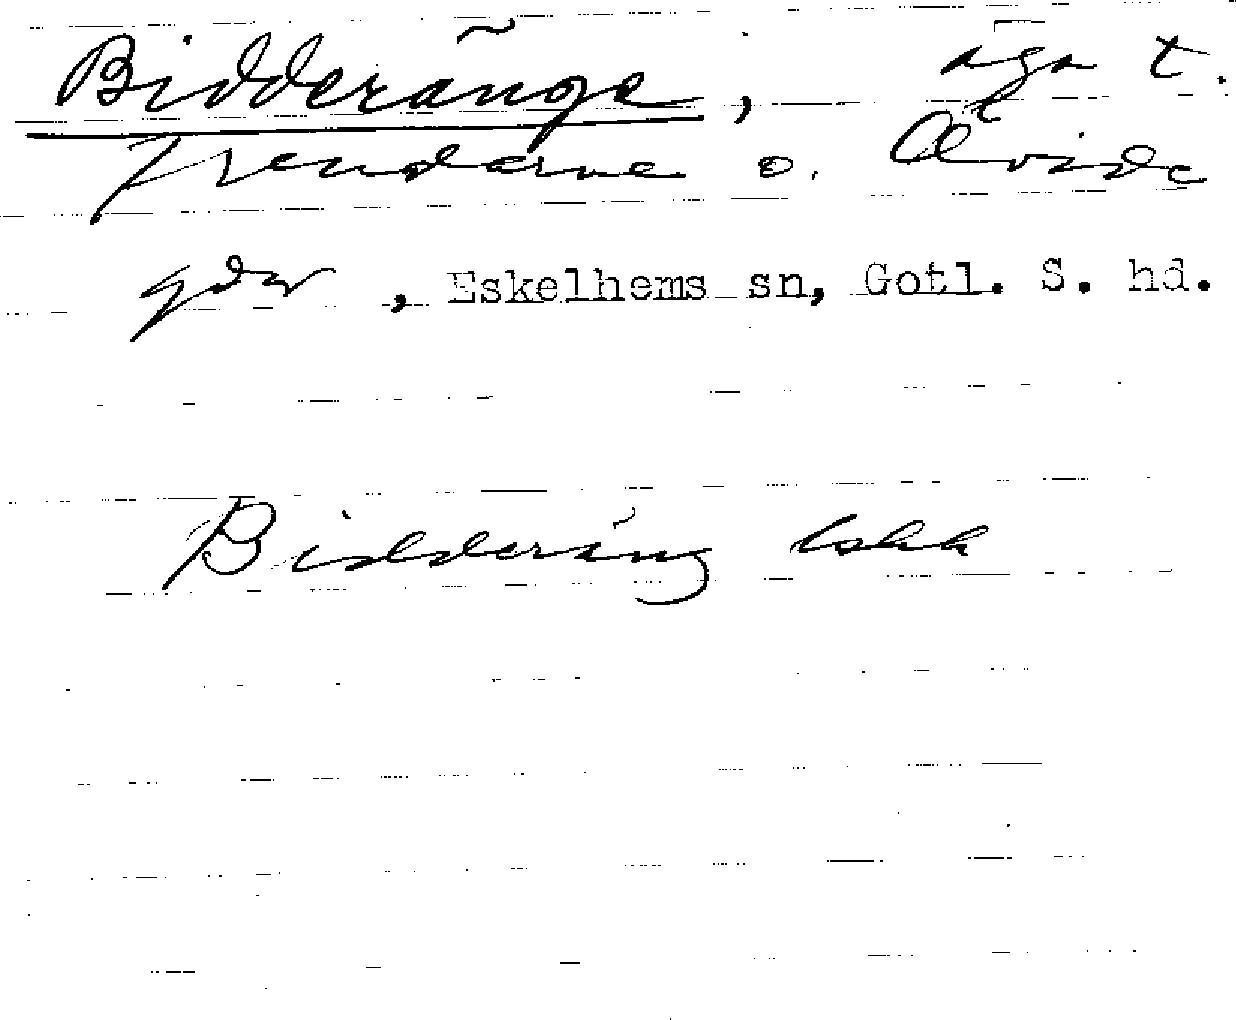 Bidderänge, äga t.
Frendarve o. Alvide
gdr, Eskelhems sn, Gotl. S. hd.
Bidderäng lskk